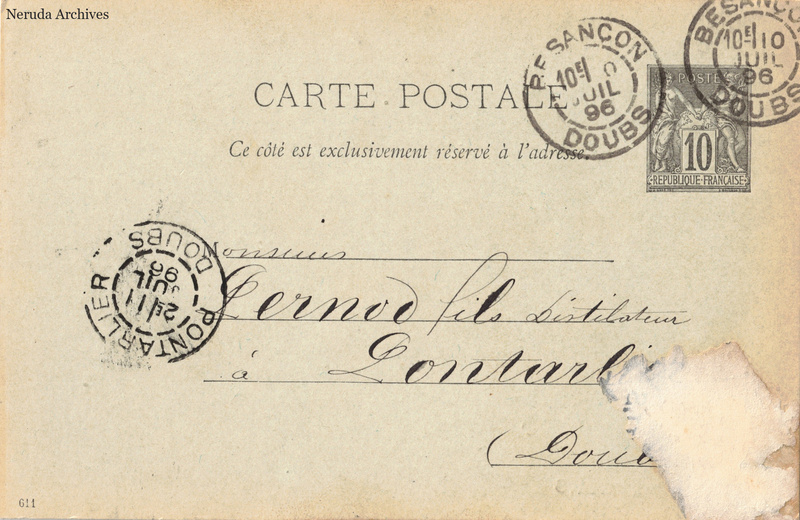 Neruda Archives
BESANÇON
10E 10
JUIL
96
DOUBS
BESANÇON
10E 0
JUIL
96
DOUBS
POSTES
10
RÉPUBLIQUE FRANÇAISE
CARTE POSTALE
Ce côté est exclusivement réservé à l'adresse.
Monsieur
Pernod fils Distilateur
à Pontarli
(Doub
PONTARLIER
2E 11
JUIL
96
DOUBS
611